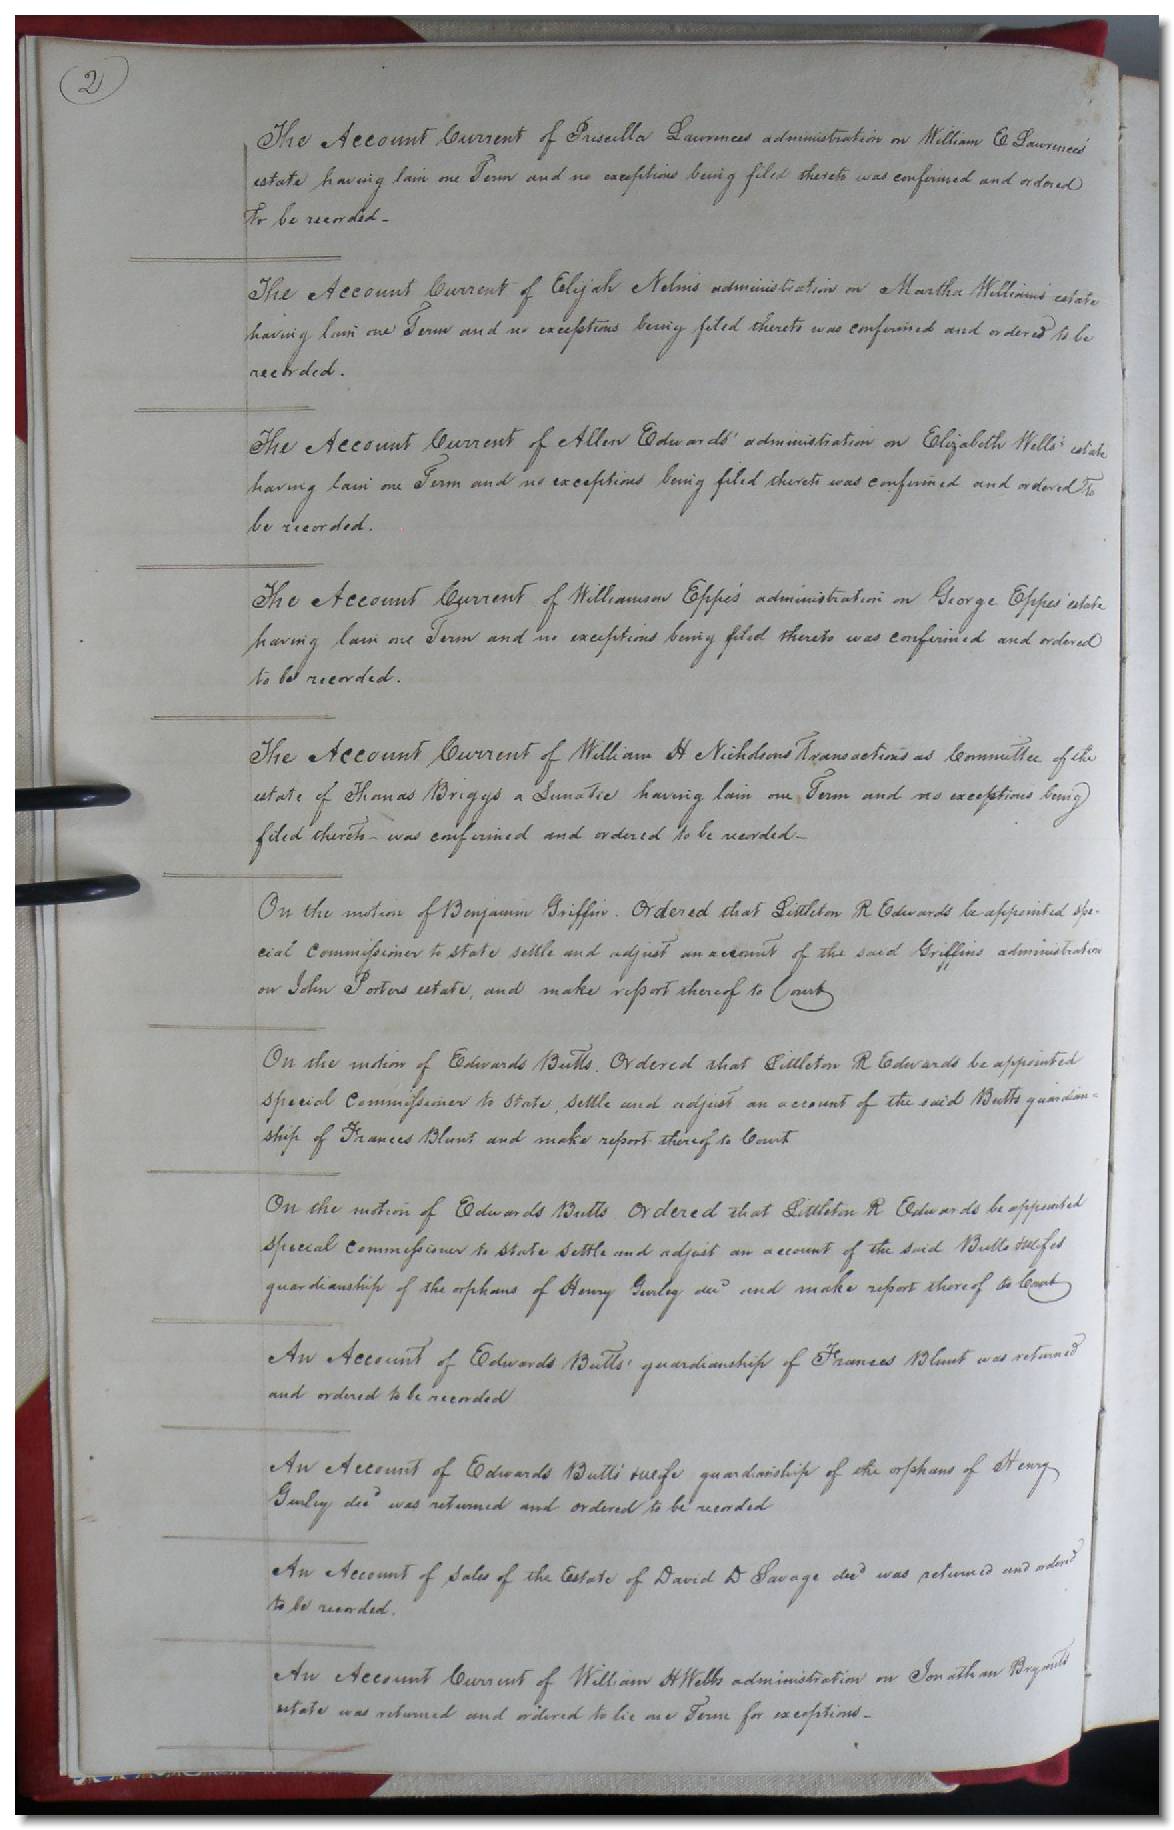 2
The Account Current of Priscilla Lawrences administration on William E Lawrences'
estate having lain one Term and no exceptions being filed thereto was confirmed and ordered
to be recorded -
The Account Current of Elijah Nelms administration on Martha Williams' estate
having lain one Term and no exceptions being filed thereto was confirmed and ordered to be
recorded.
The Account Current of Allen Edwards' administration on Elizabeth Wells' estate
having lain one Term and no exceptions being filed thereto was confirmed and ordered to
be recorded.
The Account Current of Williamson Eppes' administration on George Eppes' estate
having lain one Term and no exceptions being filed thereto was confirmed and ordered
to be recorded.
The Account Current of William H Nicholsons transactions as Committee of the
estate of Thomas Briggs a Lunatic having lain one Term and no exceptions being
filed thereto was confirmed and ordered to be recorded -
On the motion of Benjamin Griffin. Ordered that Littleton R Edwards be appointed spe-
cial Commissioner to state settle and adjust an account of the said Griffins administration
on John Porters estate, and make report thereof to Court
On the motion of Edwards Butts. Ordered that Littleton R Edwards be appointed
special Commissioner to state, settle and adjust an account of the said Butts guardian-
ship of Frances Blunt and make report thereof to Court
On the motion of Edwards Butts Ordered that Littleton R Edwards be appointed
special Commissioner to state settle and adjust an account of the said Butts wifes
guardianship of the orphans of Henry Gurley decd and make report thereof to Court
An Account of Edwards Butts' guardianship of Frances Blunt was returned
and ordered to be recorded
An Account of Edwards Butts' wife guardianship of the orphans of Henry
Gurley decd was returned and ordered to be recorded
An Account of sales of the Estate of David D Savage decd was returned and ordered
to be recorded.
An Account Current of William H Webbs administration on Jonathan Bryants
estate was returned and ordered to lie one Term for exceptions -